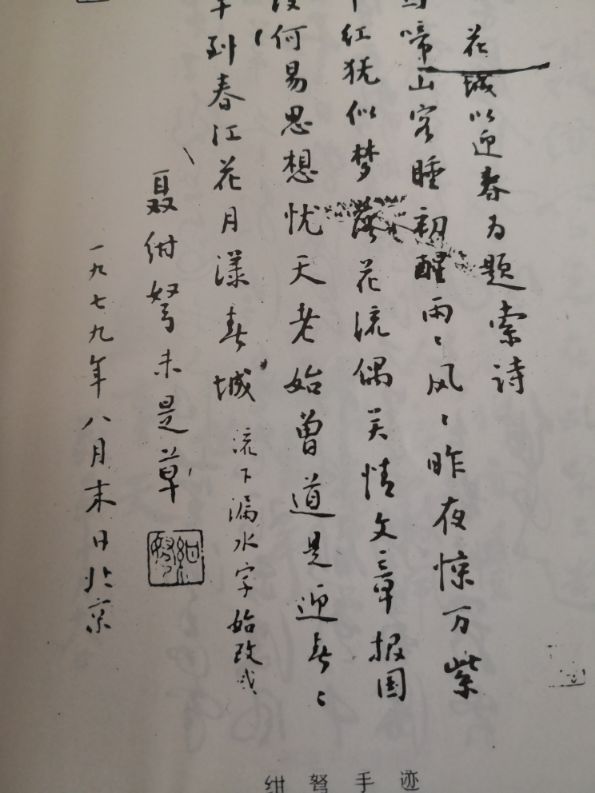 花城以迎春为题索诗
啼山客睡初醒雨〻风〻昨夜惊万紫
红犹似梦落花流偶关情文章报国
何易思想忧天老始曾道是迎春〻
到春江花月漾春城 流下漏水字始改
聂绀弩未是草
绀弩
一九七九年八月末日北京
绀弩手迹